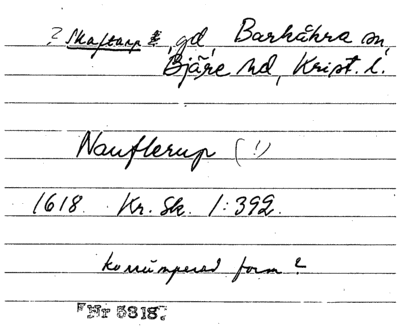 ? Skaftarp gd, Barkåkra sn,
Bjäre hd, Krist. l.
Nauflerup (!)
1618 Kr. Sk. 1:392.
korrumperad form?
Nr 5818.